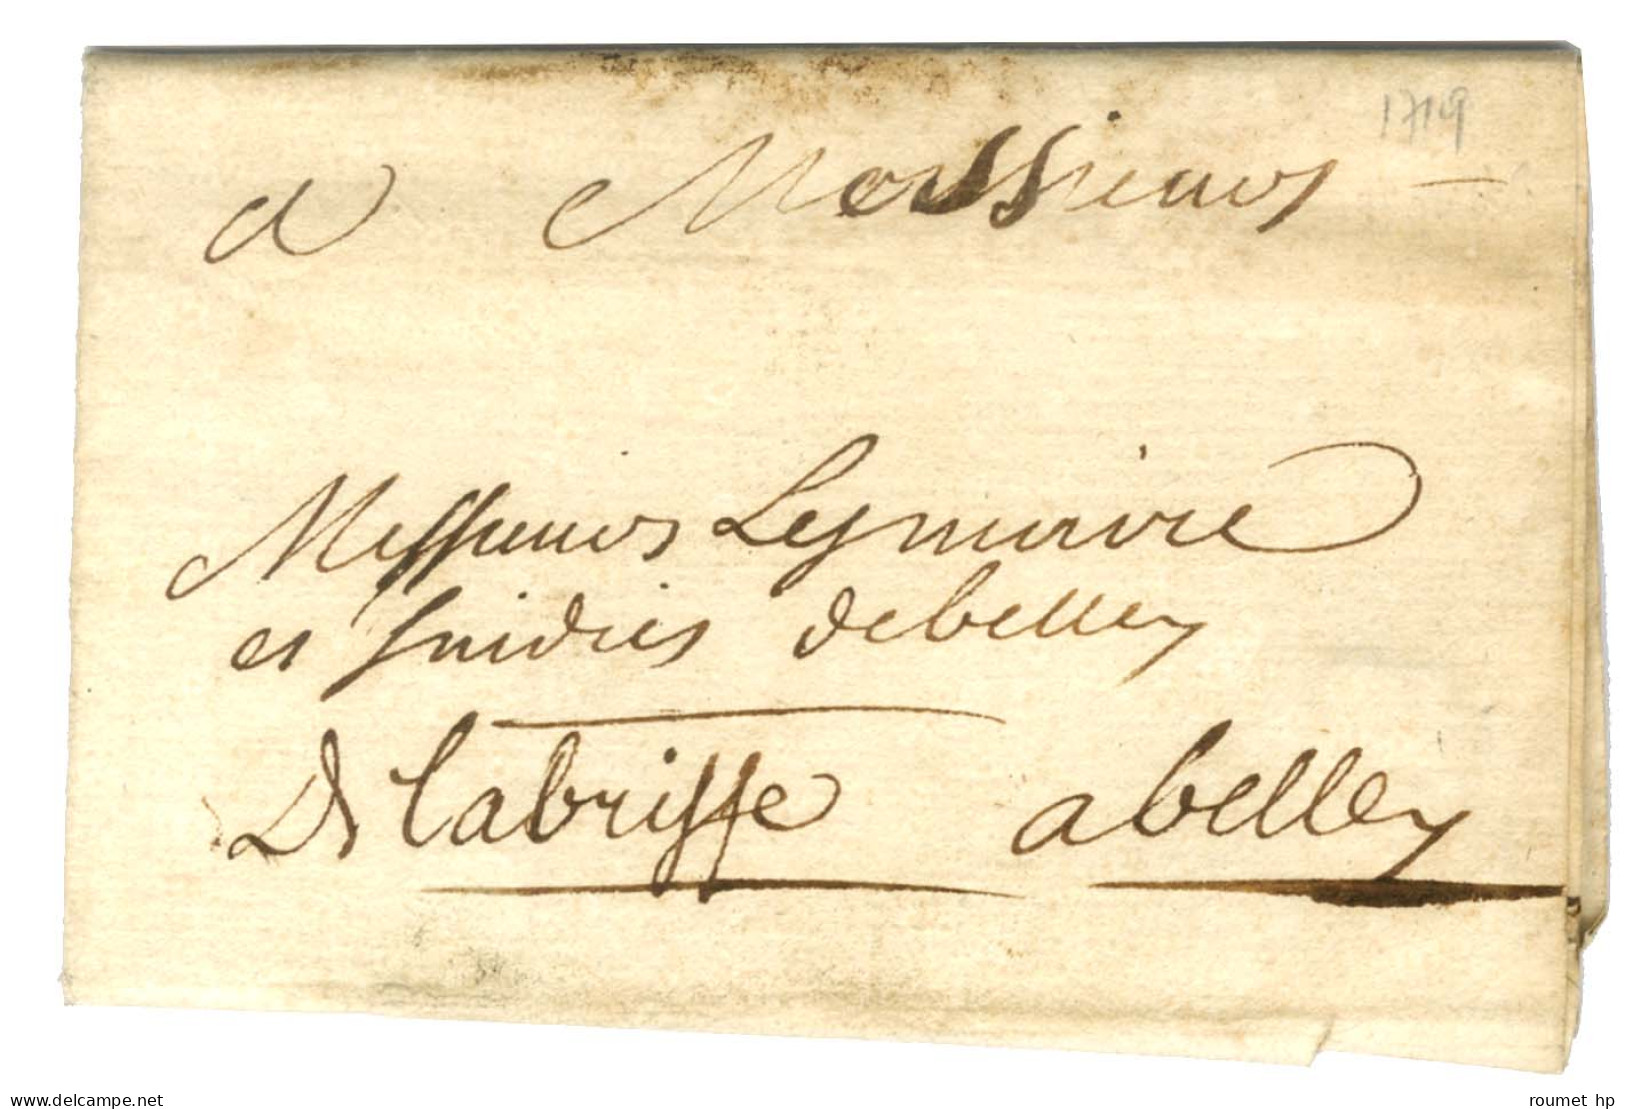 1719
a Messieurs
Messieurs Lesmaire
et sindics debelley
De Labriffe abelley
www.delcampe.net
roumet hp